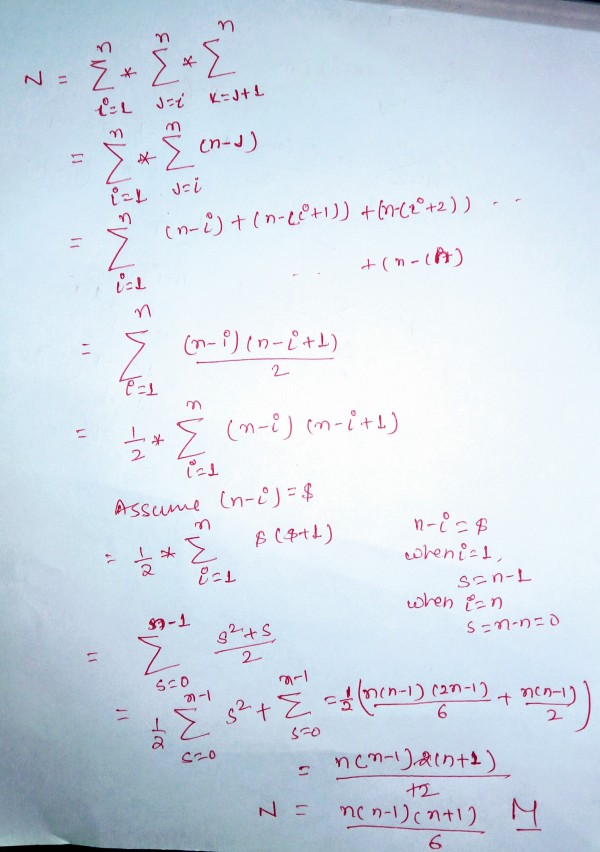 N = n∑i=1 * n∑J=i * n∑K=J+1
= n∑i=1 * n∑J=i (n-J)
= n∑i=1 (n-i) + (n-(i+1)) + (n-(i+2)) ··
·· + (n-(n)
= n∑i=1 (n-i)(n-i+1)/2
= 1/2 * n∑i=1 (n-i) (n-i+1)
Assume (n-i) = $
= 1/2 * n∑i=1 $ ($+1)
n-i = $
when i=1,
s=n-1
when i=n
s=n-n=0
= n-1∑s=0 s²+s/2
= 1/2 n-1∑s=0 s² + n-1∑s=0 = 1/2 (n(n-1)(2n-1)/6 + n(n-1)/2)
= n(n-1)2(n+1)/12
N = n(n-1)(n+1)/6